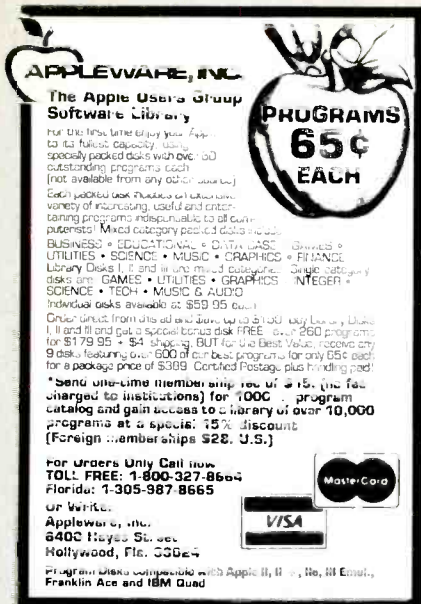 APPLEWARE, INC.
PROGRAMS
65¢
EACH
The Apple Users Group
Software Library
For the first time enjoy your
to its fullest capacity, using
specially packed disks with over
outstanding programs each
(not available from any other source)
Each packed disk includes an extensive
variety of interesting, useful and enter-
taining programs indispensable to all com-
puterists! Mixed category packed disks include
BUSINESS • EDUCATIONAL • DATA BASE GAMES •
UTILITIES • SCIENCE • MUSIC • GRAPHICS • FINANCE
Library Disks I, II and III are mixed categories. Single category
disks are: GAMES • UTILITIES • GRAPHICS INTEGER •
SCIENCE • TECH • MUSIC & AUDIO
Individual disks available at $59.95 each
Order direct from this ad and save up to Buy Library Disks
I, II and III and get a special bonus disk FREE over 260 programs
for $179.95 + $4 shipping. BUT for the Best Value, receive any
9 disks featuring over 600 of our best programs for only 65¢ each
for a package price of Certified Postage plus handling paid!
*Send one-time membership fee of $15. (no fee
charged to institutions) for program
catalog and gain access to a library of over 10,000
programs at a special 15% discount
(Foreign memberships $28. U.S.)
For Orders Only Call now
TOLL FREE: 1-800-327-8664
Florida: 1-305-987-8665
Or Write:
Appleware, Inc.
6400 Hayes Street
Hollywood, Fla. 33024
MasterCard
VISA
Program Disks compatible with Apple II, IIe, III Emul.,
Franklin Ace and IBM Quad